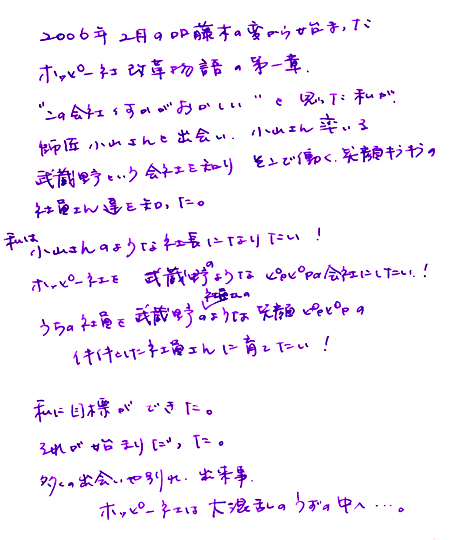 2006年2月の叩藤木の変から始まった
ホッピー社改革物語の第一章.
"この会社くすのがおかしい"と思った私が、
師匠小山さんと出会い、小山さん率いる
武蔵野という会社を知り そこで働く、笑顔キラキラの
社員さん達を知った。
私は小山さんのような社長になりたい!
ホッピー社を 武蔵野のような ピカピカの会社にしたい!
うちの社員を武蔵野の社員さんのような笑顔ピカピカの
イキイキとした社員さんに育てたい!
私に目標ができた。
それが始まりだった。
多くの出会いや別れ、出来事.
ホッピー社は大混乱のうずの中へ…。